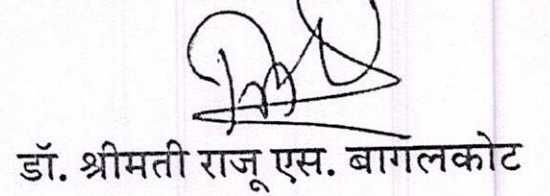 डॉ. श्रीमती राजू एस. बागलकोट